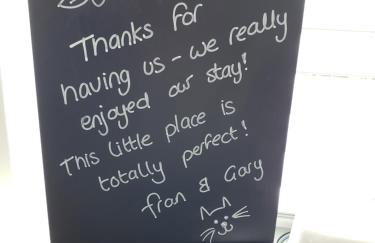 Thanks for
having us - we really
enjoyed our stay!
This little place is
totally perfect!
fran & Gary